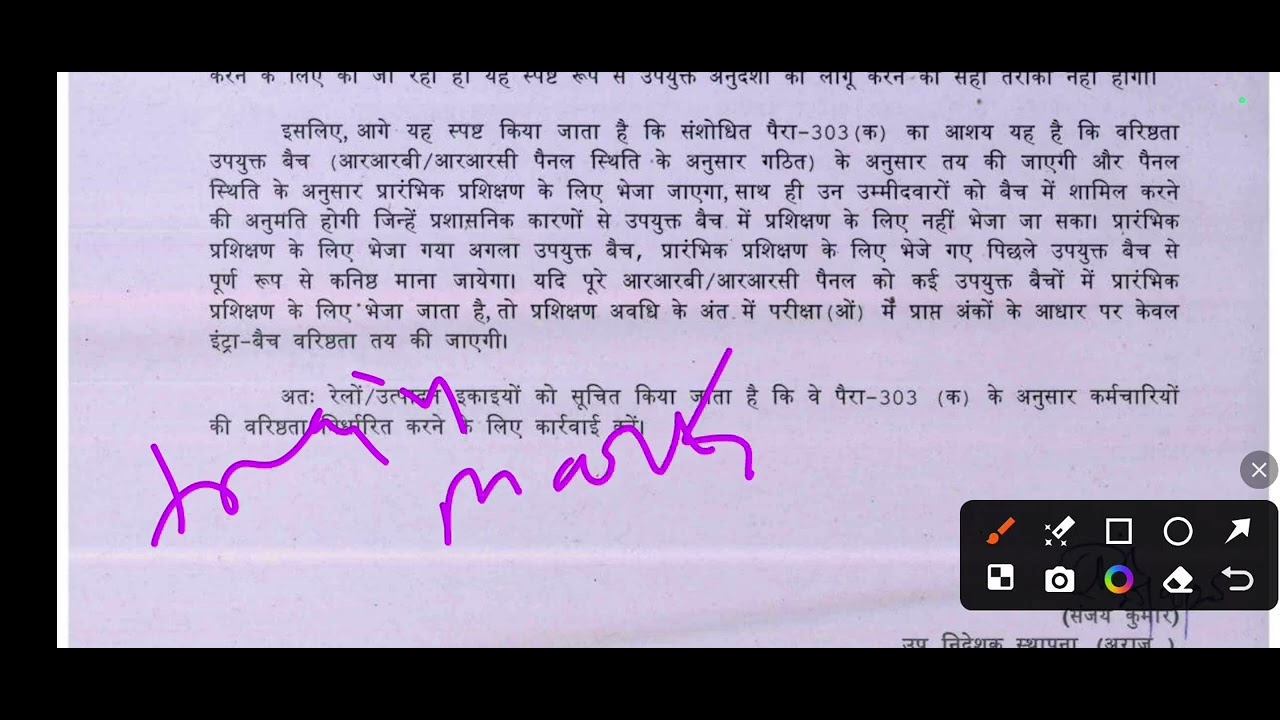 करने के लिए की जा रही है। यह स्पष्ट रूप से उपर्युक्त अनुदेशों को लागू करने का सही तरीका नहीं होगा।
इसलिए, आगे यह स्पष्ट किया जाता है कि संशोधित पैरा-303(क) का आशय यह है कि वरिष्ठता
उपयुक्त बैच (आरआरबी/आरआरसी पैनल स्थिति के अनुसार गठित) के अनुसार तय की जाएगी और पैनल
स्थिति के अनुसार प्रारंभिक प्रशिक्षण के लिए भेजा जाएगा, साथ ही उन उम्मीदवारों को बैच में शामिल करने
की अनुमति होगी जिन्हें प्रशासनिक कारणों से उपयुक्त बैच में प्रशिक्षण के लिए नहीं भेजा जा सका। प्रारंभिक
प्रशिक्षण के लिए भेजा गया अगला उपयुक्त बैच, प्रारंभिक प्रशिक्षण के लिए भेजे गए पिछले उपयुक्त बैच से
पूर्ण रूप से कनिष्ठ माना जायेगा। यदि पूरे आरआरबी/आरआरसी पैनल को कई उपयुक्त बैचों में प्रारंभिक
प्रशिक्षण के लिए भेजा जाता है, तो प्रशिक्षण अवधि के अंत में परीक्षा(ओं) में प्राप्त अंकों के आधार पर केवल
इंट्रा-बैच वरिष्ठता तय की जाएगी।
अतः रेलों/उत्पादन इकाइयों को सूचित किया जाता है कि वे पैरा-303 (क) के अनुसार कर्मचारियों
की वरिष्ठता निर्धारित करने के लिए कार्रवाई करें।
mark
(संजय कुमार)
उप निदेशक स्थापना (अराज.)